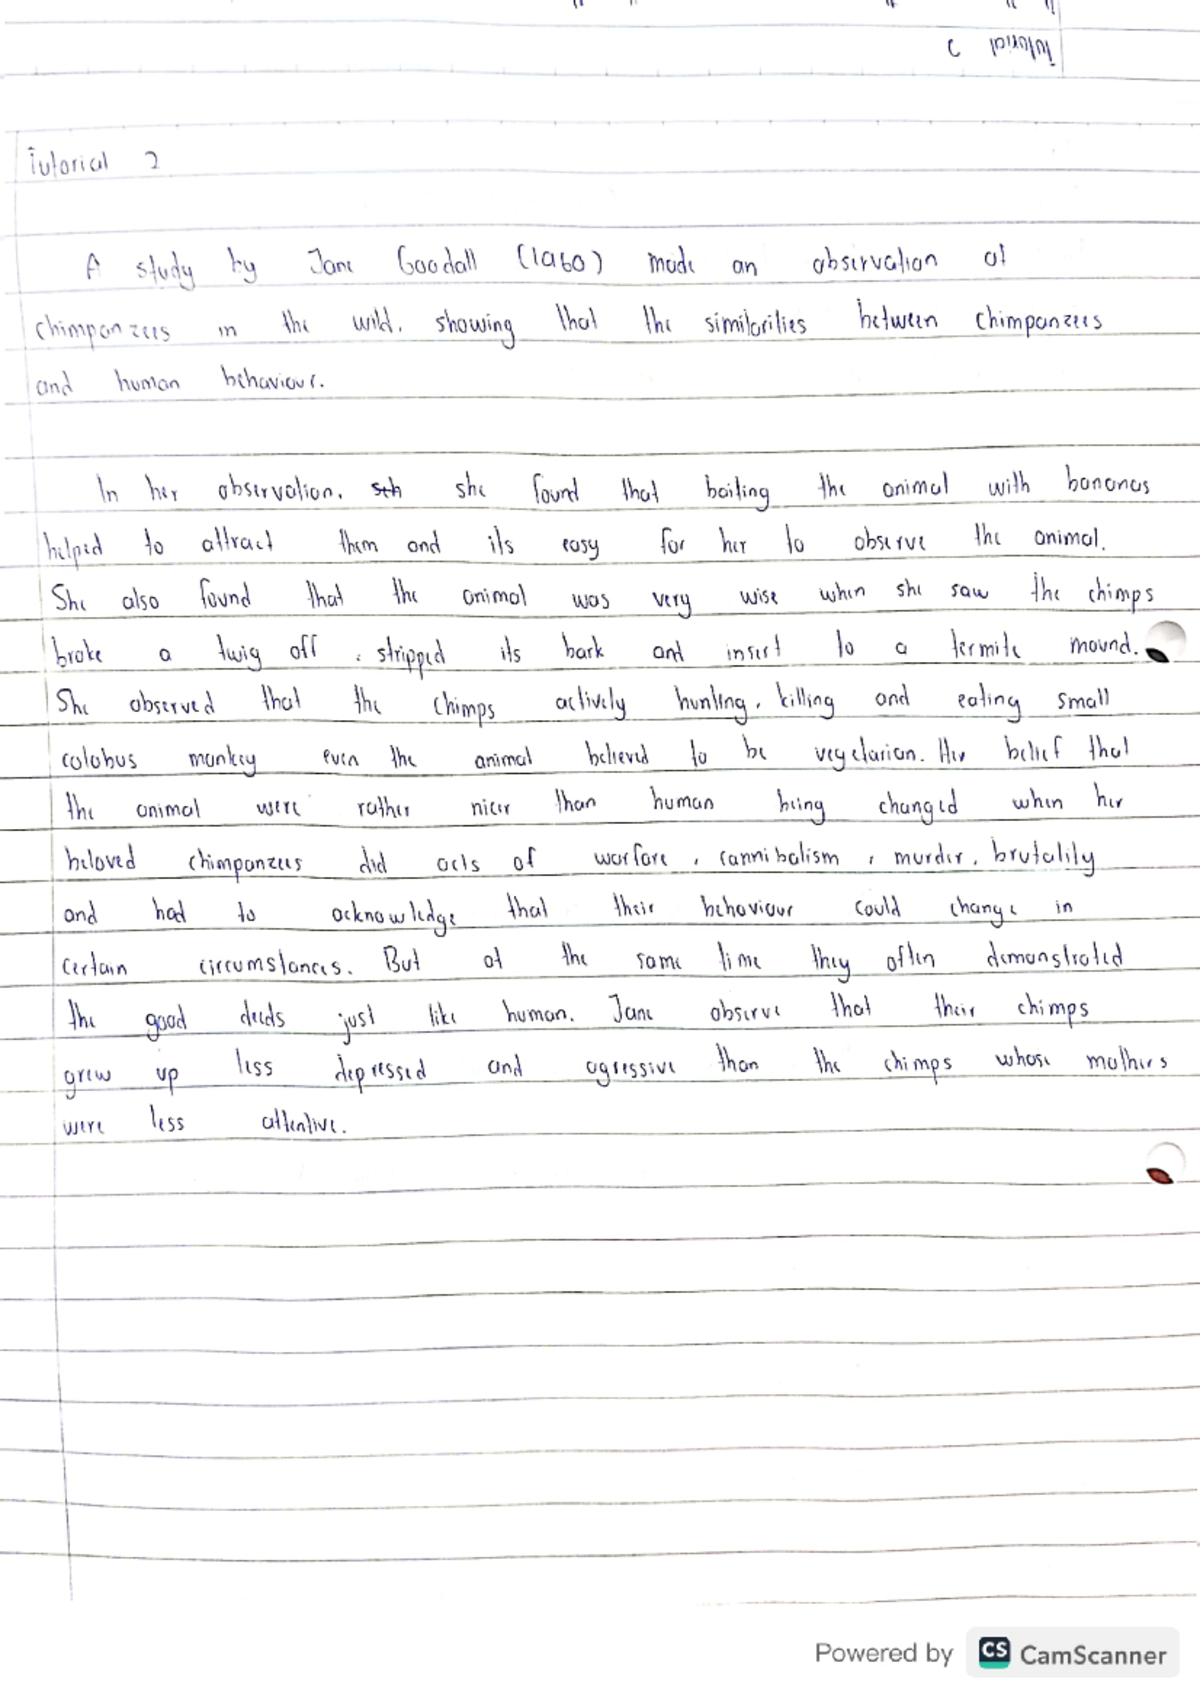 Tutorial 2
Tutorial 2
A study by Jane Goodall (1960) made an observation of
chimpanzees in the wild, showing that the similarities between chimpanzees
and human behaviour.
In her observation, sth she found that baiting the animal with bananas
helped to attract them and its easy for her to observe the animal.
She also found that the animal was very wise when she saw the chimps
broke a twig off, stripped its bark and insert to a termite mound.
She observed that the chimps actively hunting, killing and eating small
colobus monkey even the animal believed to be vegetarian. Her belief that
the animal were rather nicer than human being changed when her
beloved chimpanzees did acts of warfare, cannibalism, murder, brutality
and had to acknowledge that their behaviour could change in
certain circumstances. But at the same time they often demonstrated
the good deeds just like human. Jane observe that their chimps
grew up less depressed and agressive than the chimps whose mothers
were less attentive.
Powered by CS CamScanner